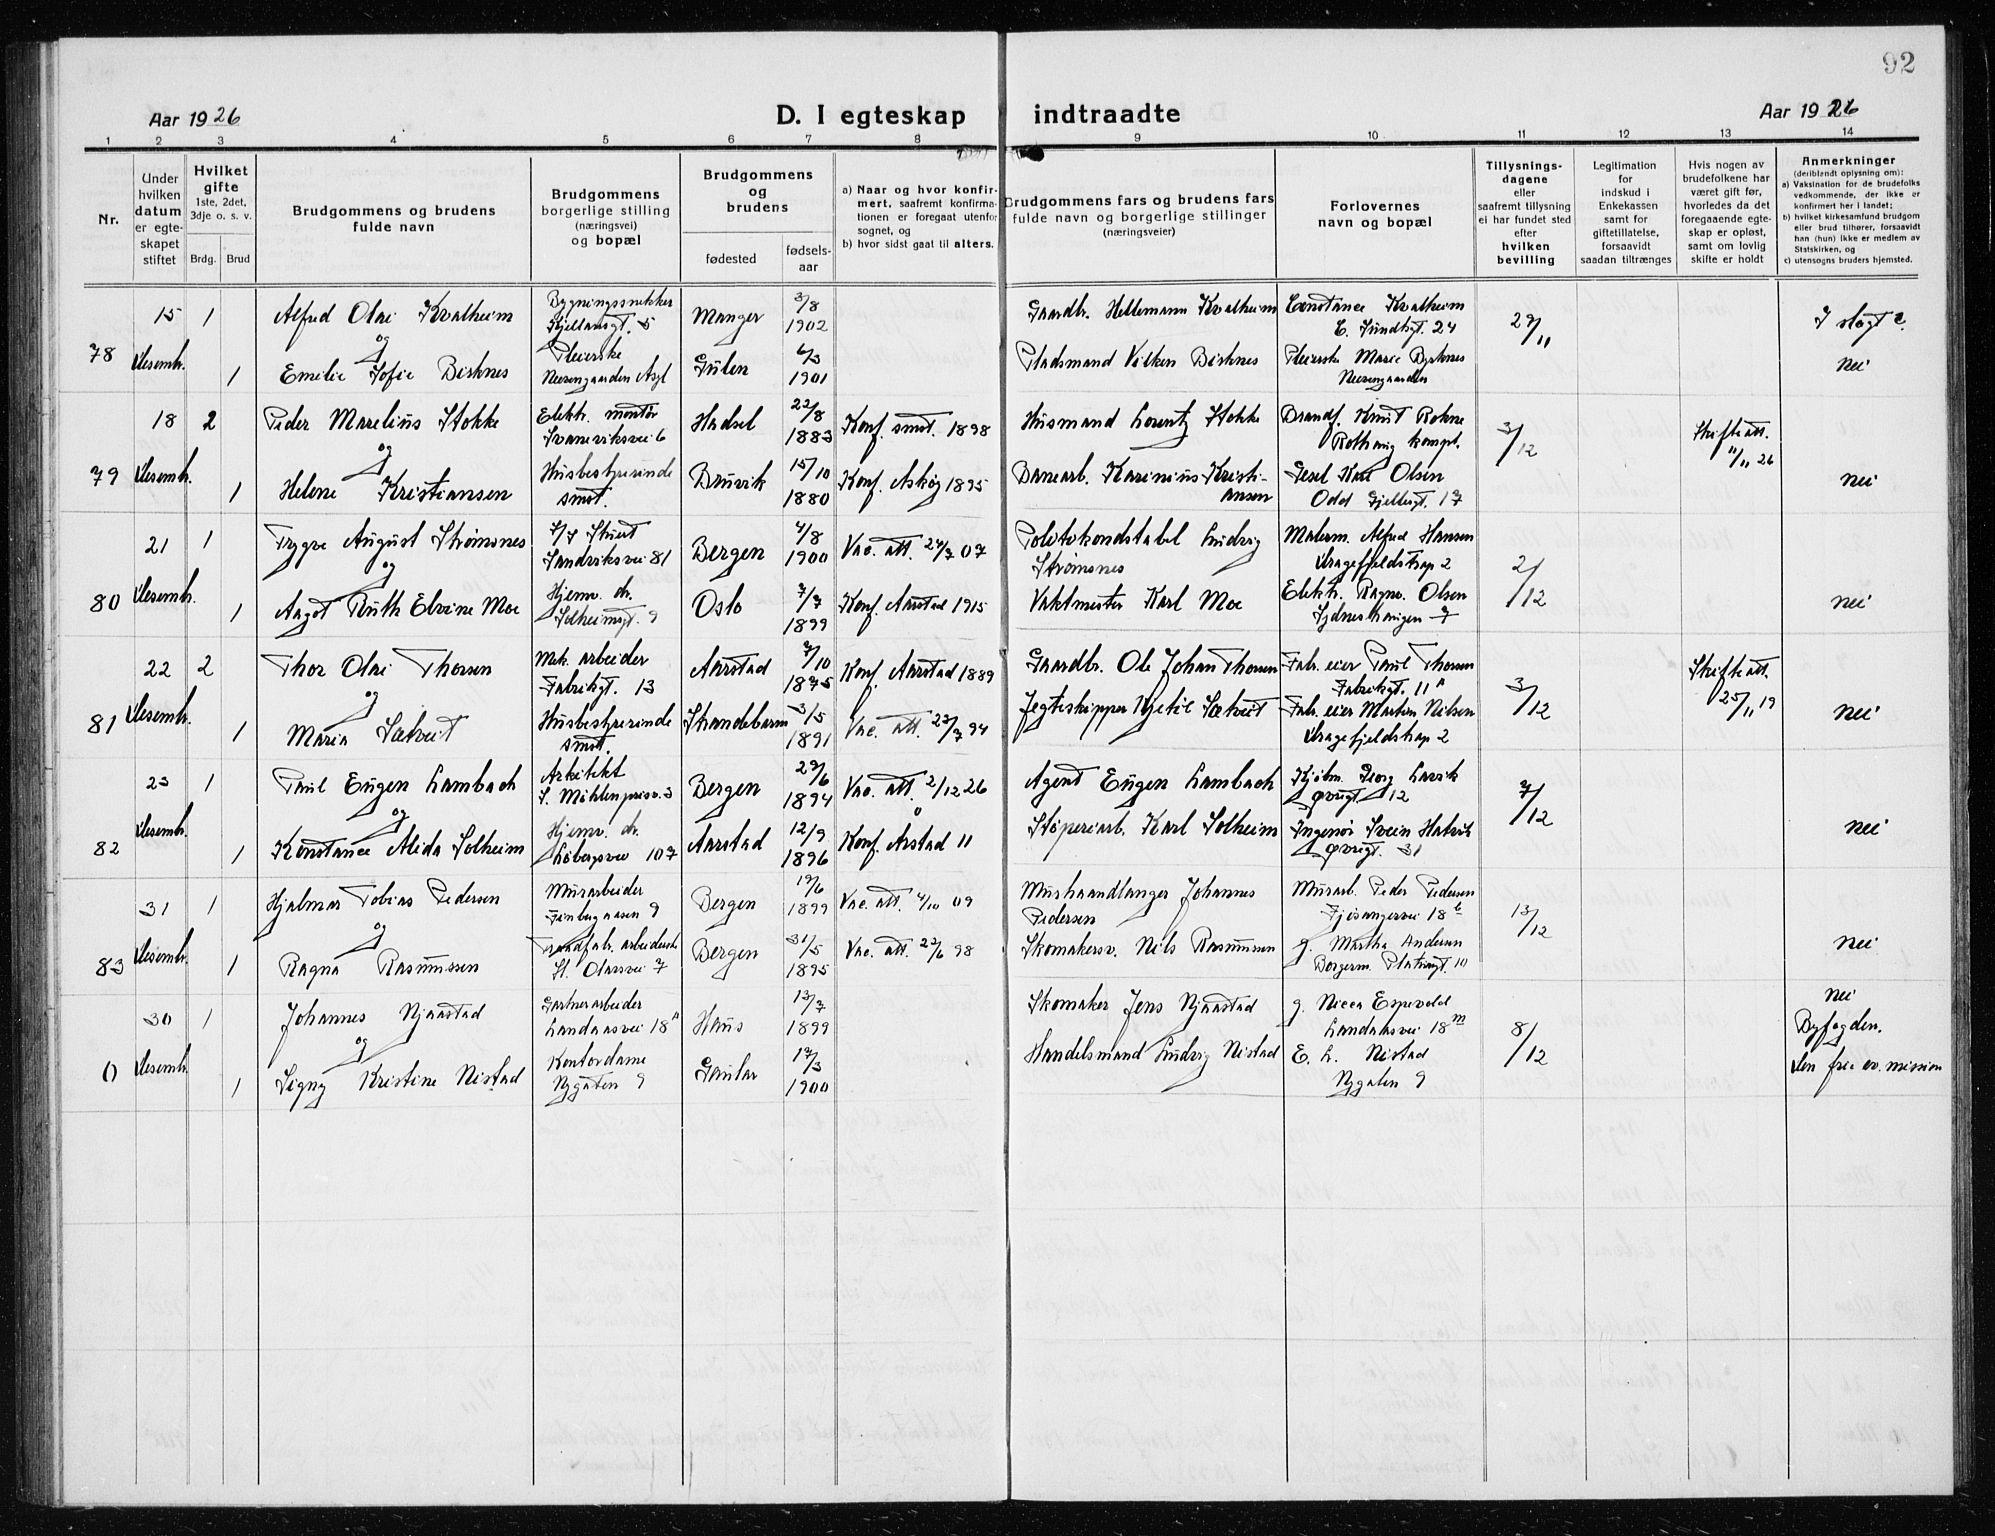 92
Aar 1926
D. I egteskap indtraadte
Aar 1926
1 2 3 4 5 6 7 8 9 10 11 12 13 14
Nr.
Under
hvilken
datum
er egte-
skapet
stiftet
Hvilket
gifte
1ste, 2det,
3dje o. s. v.
Brdg. Brud
Brudgommens og brudens
fulde navn
Brudgommens
borgerlige stilling
(næringsvei)
og bopæl
Brudgommens
og
brudens
fødested
fødsels-
aar
a) Naar og hvor konfir-
mert, saafremt konfirma-
tionen er foregaat utenfor
sognet, og
b) hvor sidst gaat til alters.
Brudgommens fars og brudens fars
fulde navn og borgerlige stillinger
(næringsveier)
Forlovernes
navn og bopæl
Tillysnings-
dagene
eller
saafremt tillysning
ei har fundet sted
efter
hvilken
bevilling
Legitimation
for
indskud i
Enkekassen
samt for
giftetillatelse,
forsaavidt
saadan tiltrænges
Hvis nogen av
brudefolkene har
været gift før,
hvorledes da det
foregaaende egte-
skap er opløst,
samt om lovlig
skifte er holdt
Anmerkninger
(deriblandt oplysning om):
a) Vaksination for de brudefolks
vedkommende, der ikke er
konfirmert her i landet;
b) hvilket kirkesamfund brudgom
eller brud tilhører, forsaavidt
han (hun) ikke er medlem av
Statskirken, og
c) utensogns bruders hjemsted.
78
15
Desembr.
1
Alfred Olai Kvalheim
Bygningssnekker
Kjellandsgt. 5
Manger
3/8
1902
Gaardbr. Hellemann Kvalheim
Constance Kvalheim
E. Sundtsgt. 24
I slegt?
og
1
Emilie Sofie Birknes
Pleierske
Neevengaarden Asyl
Gulen
6/3
1901
Pladsmand Vilken Birknes
Pleierske Marie Byrknes
Neevengaarden
nei
79
18
Desembr.
2
Peder Marelius Stokke
Elektr. montør
Svaneviksvei 6
Hadsel
22/8
1883
Konf. smst. 1898
Husmand Lorentz Stokke
Brandf. Knut Rokne
Rothaug kompl.
3/12
Skifteatt.
11/11 26
og
1
Helene Kristiansen
Husbestyrerinde
smst.
Bruvik
15/10
1880
Konf. Askøy 1895
Banearb. Karinius Kristi-
ansen
Gesel Karl Olsen
Odd Gjellesgt. 17
nei
80
21
Desembr.
1
Trygve August Strømsnes
Sandviksvei 81
Bergen
4/8
1900
Vac. att. 24/7 07
Politikonstabel Ludvig
Strømsnes
Malerm. Alfred Hansen
Dragefjeldstrap 2
2/12
og
1
Aagot Ruth Elvine Moe
Hjemv. dr.
Solheimsgt. 9
Oslo
7/7
1899
Konf. Aarstad 1915
Vaktmester Karl Moe
Elektr. Ragnv. Olsen
Sydneshaugen 7
nei
81
22
Desembr.
2
Thor Olai Thorsen
Mek. arbeider
Fabrikgt. 13
Aarstad
7/10
1875
Konf. Aarstad 1889
Gaardbr. Ole Johan Thorsen
Fabr. eier Paul Thorsen
Fabrikgt. 11 A
3/12
Skifteatt.
25/11 19
og
1
Maria Sætveit
Husbestyrerinde
smst.
Strandebarm
3/5
1891
Vac. att. 22/7 94
Jegteskipper Kjetil Sætveit
Fabr. eier Martin Nilsen
Dragefjeldstrap 2
nei
82
23
Desembr.
1
Paul Eugen Lambach
Arkitekt
S. Møhlenprisv. 3
Bergen
27/6
1894
Vac. att. 2/12 26
Agent Eugen Lambach
Kjøbm. Georg Larvik
Øvregt. 12
7/12
og
1
Konstance Alida Solheim
Hjemv. dr.
Løbergsvei 107
Aarstad
12/9
1896
Konf. Årstad 11
Støperiarb. Karl Solheim
Ingeniør Svein Hatvik
Øvregt. 31
nei
83
31
Desembr.
1
Hjalmar Tobias Pedersen
Murarbeider
Finbergaasen 9
Bergen
19/6
1899
Vac. att. 4/10 09
Murhaandlanger Johannes
Pedersen
Murarb. Peder Pedersen
Fjøsangervei 18 b
13/12
og
1
Ragna Rasmussen
Traadfabr. arbeiderske
St. Olafsvei 7
Bergen
31/5
1895
Vac. att. 22/6 98
Skomakersv. Nils Rasmussen
g. Martha Andersen
Borgerm. Platousgt. 10
nei
0
30
Desembr.
1
Johannes Njaastad
Gartnerarbeider
Landaasvei 18 A
Haus
13/7
1899
Skomaker Jens Njaastad
g. Nicca Espevold
Landaasvei 18 m
8/12
nei
Byfogden.
og
1
Signy Kristine Nistad
Kontordame
Nygaten 9
Gaular
17/3
1900
Handelsmand Ludvig Nistad
E. L. Nistad
Nygaten 9
Den frie ev. mission